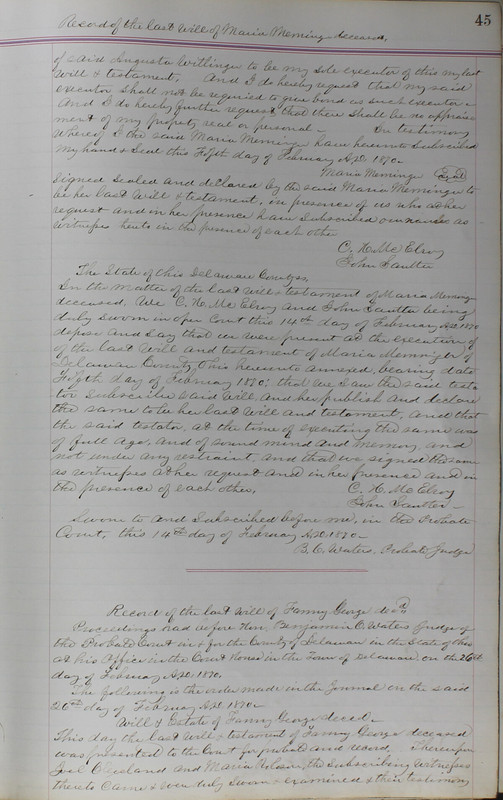 45
Record of the last Will of Maria Meminger deceased,
of said Augusta Withinger to be my sole executor of this my last
Will & testament. And I do hereby request that my said
executor shall not be required to give bond as such executor -
And I do hereby further request, that there shall be no appraise
ment of my property real or personal - In testimony
Whereof I the said Maria Memminger have hereunto subscribed
my hand & Seal this Fifth day of February A.D. 1870 -
Maria Memminger Seal
Signed Sealed and declared by the said Maria Memminger to
be her last Will & testament, in presence of us who at her
request and in her presence have subscribed our names as
witnesses hereto in the presence of each other
C. H. McElroy
John Sautter
The State of Ohio Delaware County ss.
In the matter of the last will & testament of Maria Memminger
deceased. We C. H. McElroy and John Sautter being
duly sworn in open Court this 14th day of February A.D. 1870
depose and say that we were present at the execution of
of the last Will and testament of Maria Memminger of
Delaware County Ohio hereunto annexed, bearing date
Fifth day of February 1870; that we saw the said testa
tor subscribe said Will, and her publish and declare
the same to be her last Will and testament, and that
the said testator, at the time of executing the same was
of full age, and of sound mind and memory, and
not under any restraint, and that we signed the same
as witnesses at her request and in her presence and in
the presence of each other.
C. H. McElroy
John Sautter -
Sworn to and Subscribed before me, in the Probate
Court, this 14th day of February A.D. 1870 -
B. C. Waters, Probate Judge
Record of the last Will of Fanny George dec'd,
Proceedings had before Hon. Benjamin C. Waters Judge of
the Probate Court in & for the County of Delaware in the State of Ohio
at his office in the Court House in the Town of Delaware, on the 26th
day of February A.D. 1870.
The following is the order made in the Journal on the said
26th day of February A.D. 1870 -
Will & Estate of Fanny George deced -
This day the last Will & testament of Fanny George deceased
was presented to the Court for probate and record. Thereupon
Cleaveland and Maria the subscribing witnesses
thereto came & were duly sworn & examined & their testimony